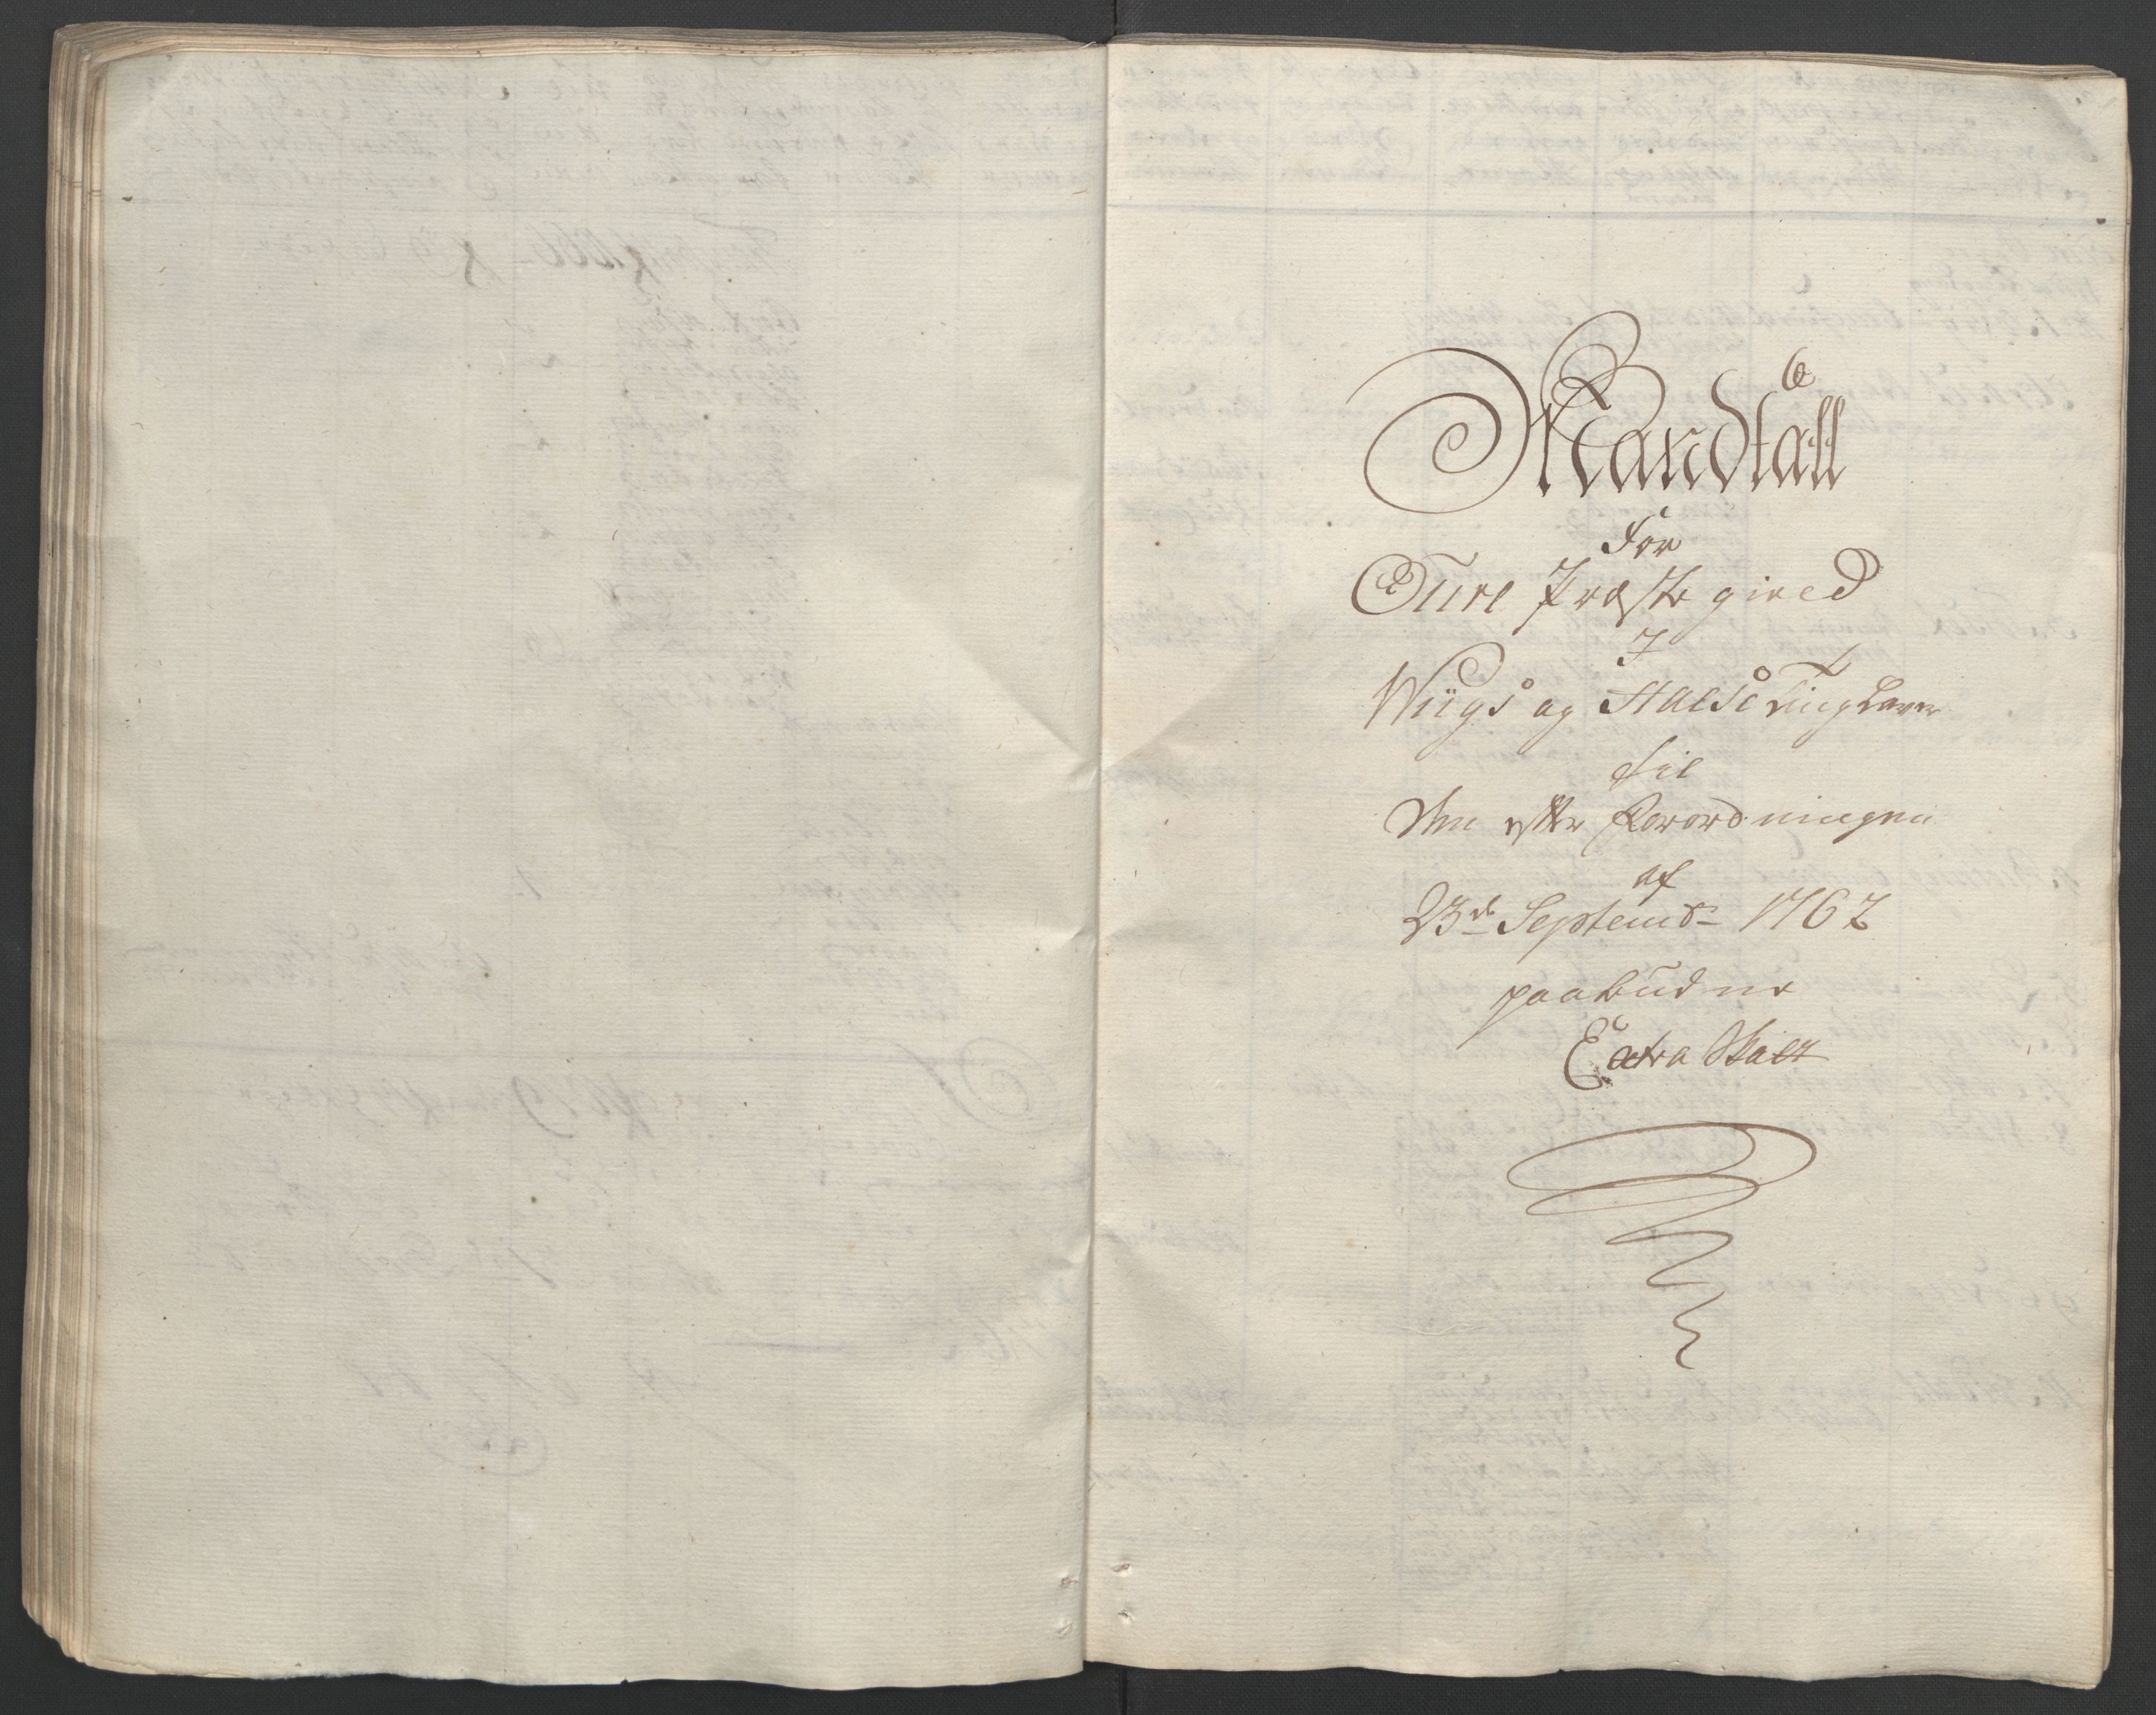 Mandtall
For
Øure Præstegield
I
Wiigs og Halse Tinglauer
til
Den efter Forordningen
af
23de Septembr 1762
paabudne
Extra Skatt